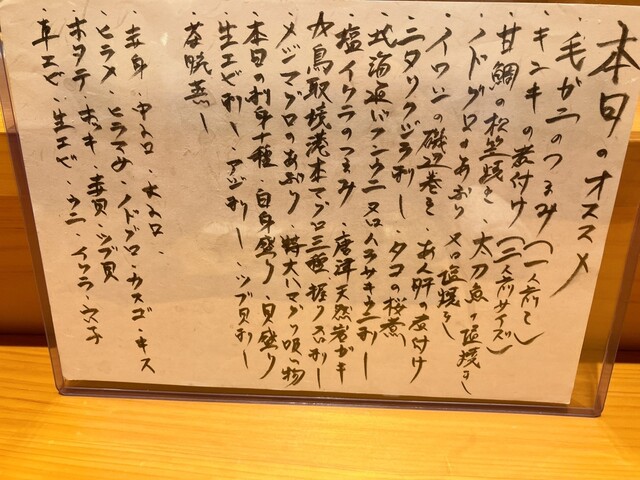 本日のオススメ
・毛ガニのつまみ(一人前ぐし)
・キンキの煮付け(二人前サイズ)
・甘鯛の松笠焼き・太刀魚の塩焼き
・ノドグロのあぶり又は塩焼き
・イワシの磯辺巻き・あん肝の煮付け
・ニタリクジラ刺し・タコの桜煮
・北海道バフンウニ又はムラサキウニ刺し
・塩イクラのつまみ・唐津天然岩ガキ
・鳥取境港本マグロ三種握り又は刺し
・メジマグロのあぶり・特大ハマグリ吸い物
・本日の刺身十種・白身盛り・貝盛り
・生エビ刺し・アジ刺し・ツブ貝刺し
・茶碗蒸し
・赤身・中トロ・大トロ・
・ヒラメ・ヒラマサ・ノドグロ・カスゴ・キス
・ホタテ・ホッキ・赤貝・ツブ貝
・車エビ・生エビ・ウニ・イクラ・穴子